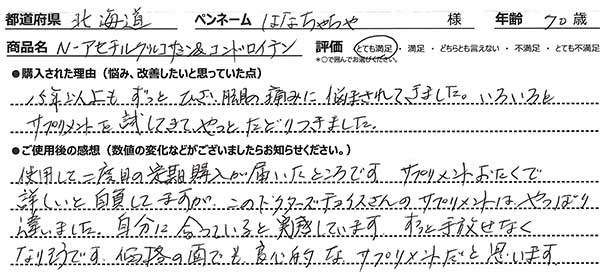 都道府県 北海道 ペンネーム はなちゃちゃ 様 年齢 70歳
商品名 N-アセチルグルコサミン&コンドロイチン 評価 とても満足・満足・どちらとも言えない・不満足・とても不満足
*○で囲んでお選びください。
●購入された理由（悩み、改善したいと思っていた点）
15年以上も ずっと ひざ、腰の痛みに悩まされてきました。いろいろと
サプリメントを試してきて、やっと たどりつきました。
●ご使用後の感想（数値の変化などがございましたらお知らせください。）
使用して二度目の定期購入が届いたところです サプリメントおたくで
詳しいと自負してますが、このドクターズチョイスさんのサプリメントは、やっぱり
違いました。自分に合っていると実感しています ずっと手放せなく
なりそうです。価格の面でも良心的な サプリメントだと思います